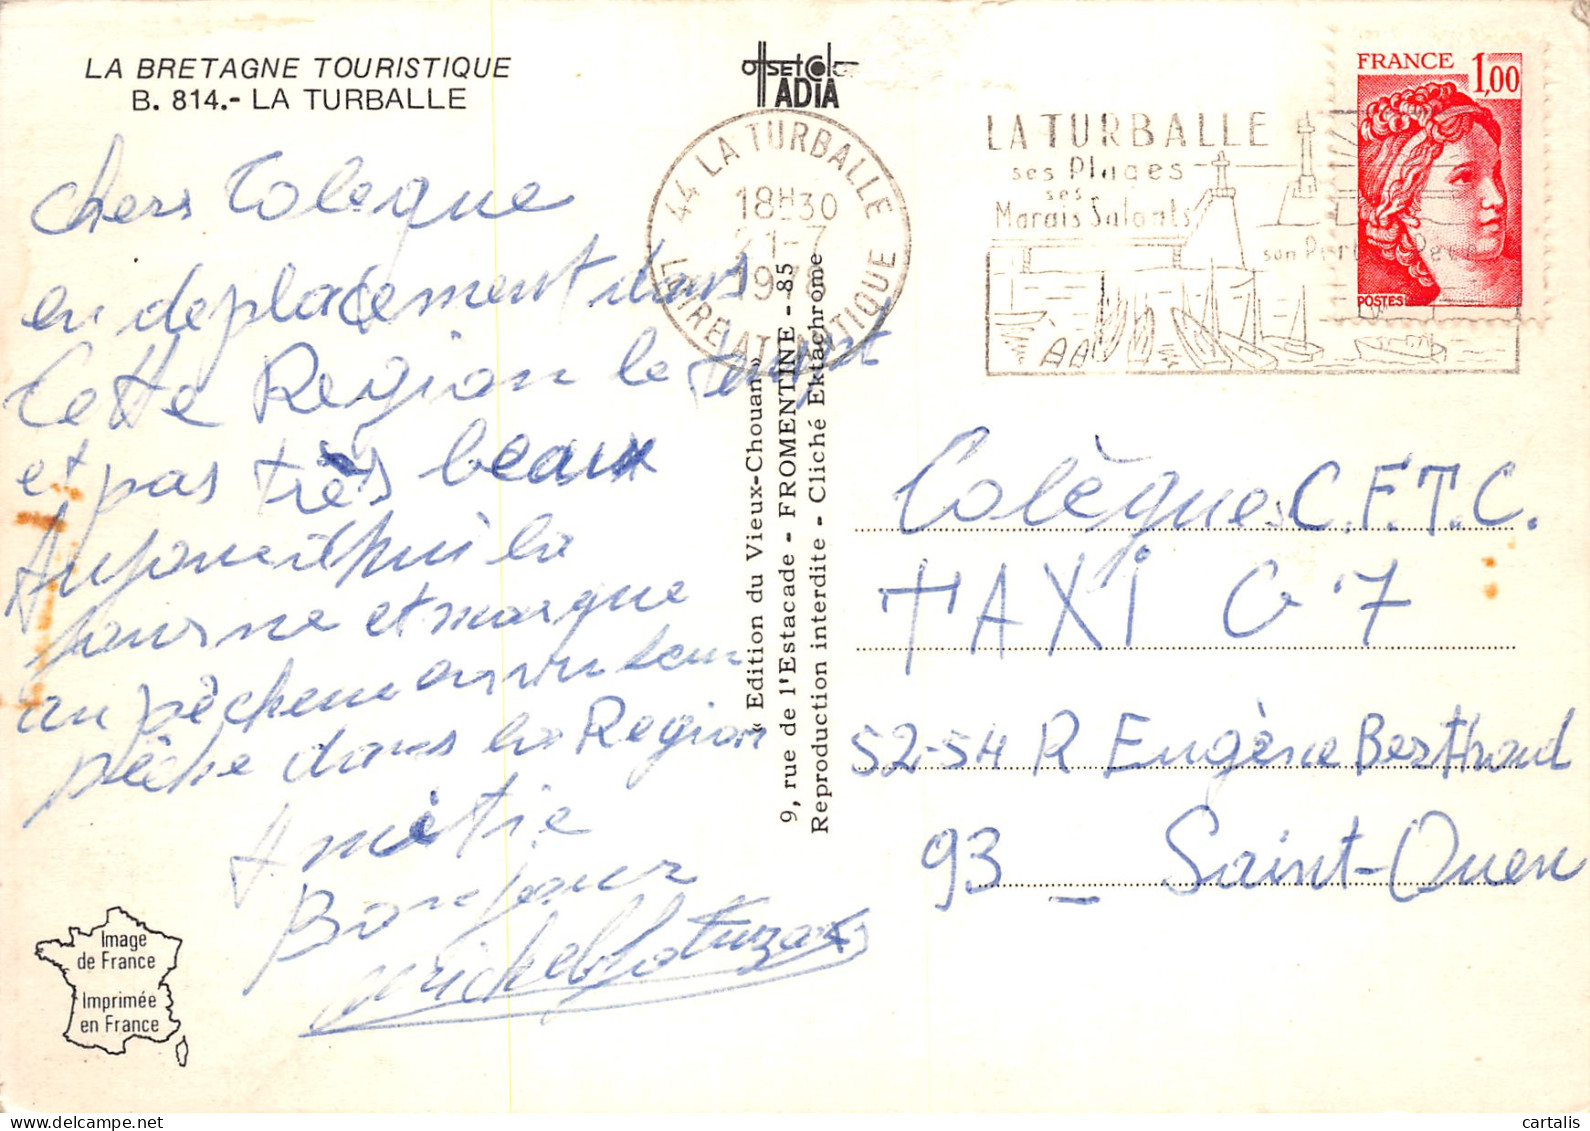 LA BRETAGNE TOURISTIQUE
B. 814.- LA TURBALLE
Chers Colegue
en deplacement dans
Cette Region le temps
et pas très beaux
Aujourd'hui la
journe et
au
pêche dans la Region
Amitie
Bonjour
Michel
Image
de France
Imprimée
en France
offset color
ADIA
44 LA TURBALLE
18H30
21-7
1978
LOIRE ATLANTIQUE
« Edition du Vieux-Chouan »
9, rue de l'Estacade - FROMENTINE - 85
Reproduction interdite - Cliché Ektachrome
LA TURBALLE
ses Plages
ses
Marais Salants
son Port de Peche
FRANCE 1,00
POSTES
Colègues C.F.T.C.
TAXI G7
52-54 R Eugène Berthoud
93 _ Saint-Ouen
cartalis